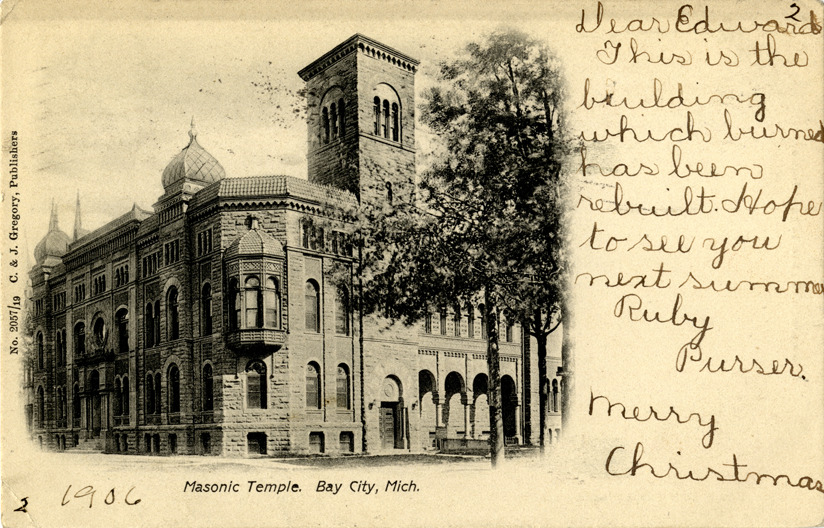 2
Dear Edward
This is the
building
which burned
has been
rebuilt. Hope
to see you
next summer
Ruby
Purser.
Merry
Christmas
No. 2057/19 C. & J. Gregory, Publishers
Masonic Temple. Bay City, Mich.
2 1906